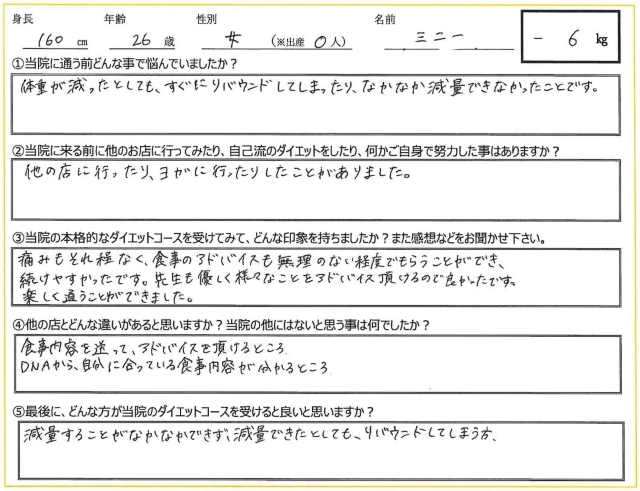 身長 年齢 性別 名前
160 cm 26 歳 女 (※出産 0 人) ミニー － 6 kg
①当院に通う前どんな事で悩んでいましたか？
体重が減ったとしても、すぐにリバウンドしてしまったり、なかなか減量できなかったことです。
②当院に来る前に他のお店に行ってみたり、自己流のダイエットをしたり、何かご自身で努力した事はありますか？
他の店に行ったり、ヨガに行ったりしたことがありました。
③当院の本格的なダイエットコースを受けてみて、どんな印象を持ちましたか？また感想などをお聞かせ下さい。
痛みもそれ程なく、食事のアドバイスも無理のない程度でもらうことができ、
続けやすかったです。先生も優しく様々なことをアドバイス頂けるので良かったです。
楽しく通うことができました。
④他の店とどんな違いがあると思いますか？当院の他にはないと思う事は何でしたか？
食事内容を送って、アドバイスを頂けるところ.
DNAから、自分に合っている食事内容が分かるところ.
⑤最後に、どんな方が当院のダイエットコースを受けると良いと思いますか？
減量することがなかなかできず、減量できたとしても、リバウンドしてしまう方.